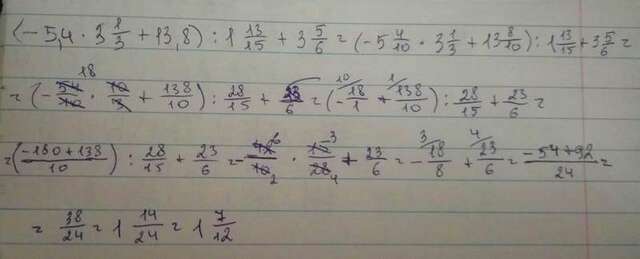 (-5,4 · 3 1/3 + 13,8) : 1 13/15 + 3 5/6 = (-5 4/10 · 3 1/3 + 13 8/10) : 1 13/15 + 3 5/6 =
= (- 54/10 · 10/3 + 138/10) : 28/15 + 23/6 = (- 18/1 + 138/10) : 28/15 + 23/6 =
= (-180+138)/10 : 28/15 + 23/6 = - / · 15/28 + 23/6 = - 18/8 + 23/6 = (-54+92)/24 =
= 38/24 = 1 14/24 = 1 7/12